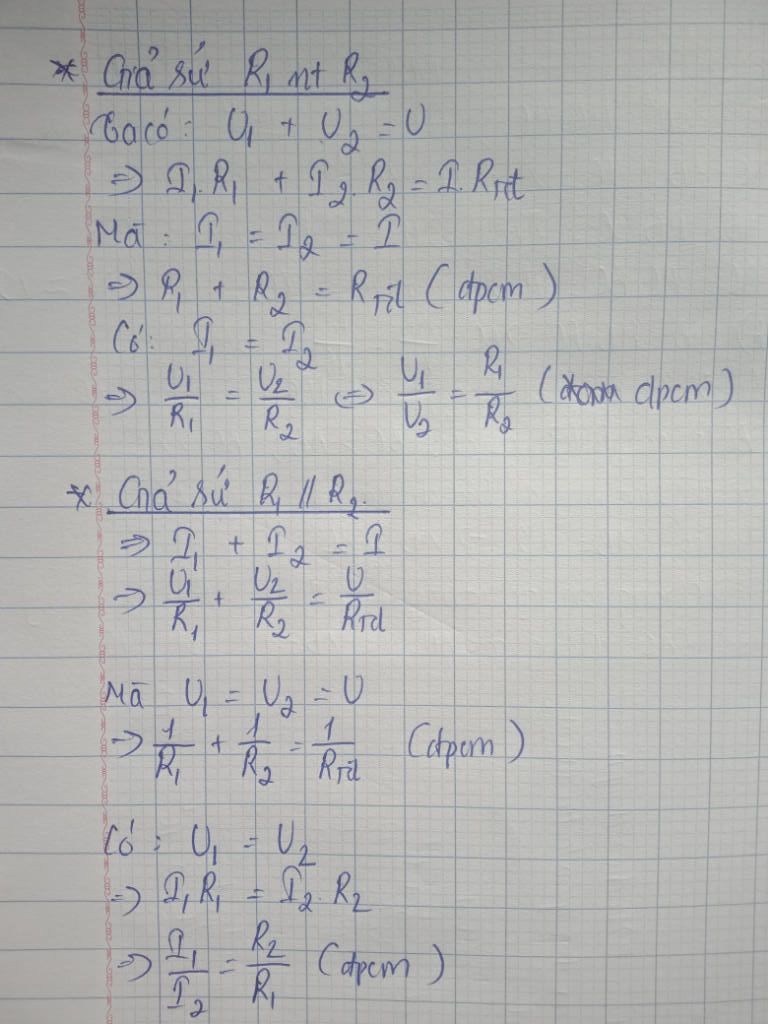 * Giả sử R₁ nt R₂
Ta có: U₁ + U₂ = U
=> I₁.R₁ + I₂.R₂ = I.Rtđ
Mà: I₁ = I₂ = I
=> R₁ + R₂ = Rtđ (đpcm)
Có: I₁ = I₂
=> U₁/R₁ = U₂/R₂ <=> U₁/U₂ = R₁/R₂ (đpcm)
* Giả sử R₁ // R₂.
=> I₁ + I₂ = I
=> U₁/R₁ + U₂/R₂ = U/Rtđ
Mà U₁ = U₂ = U
=> 1/R₁ + 1/R₂ = 1/Rtđ (đpcm)
Có: U₁ = U₂
=> I₁R₁ = I₂.R₂
=> I₁/I₂ = R₂/R₁ (đpcm)